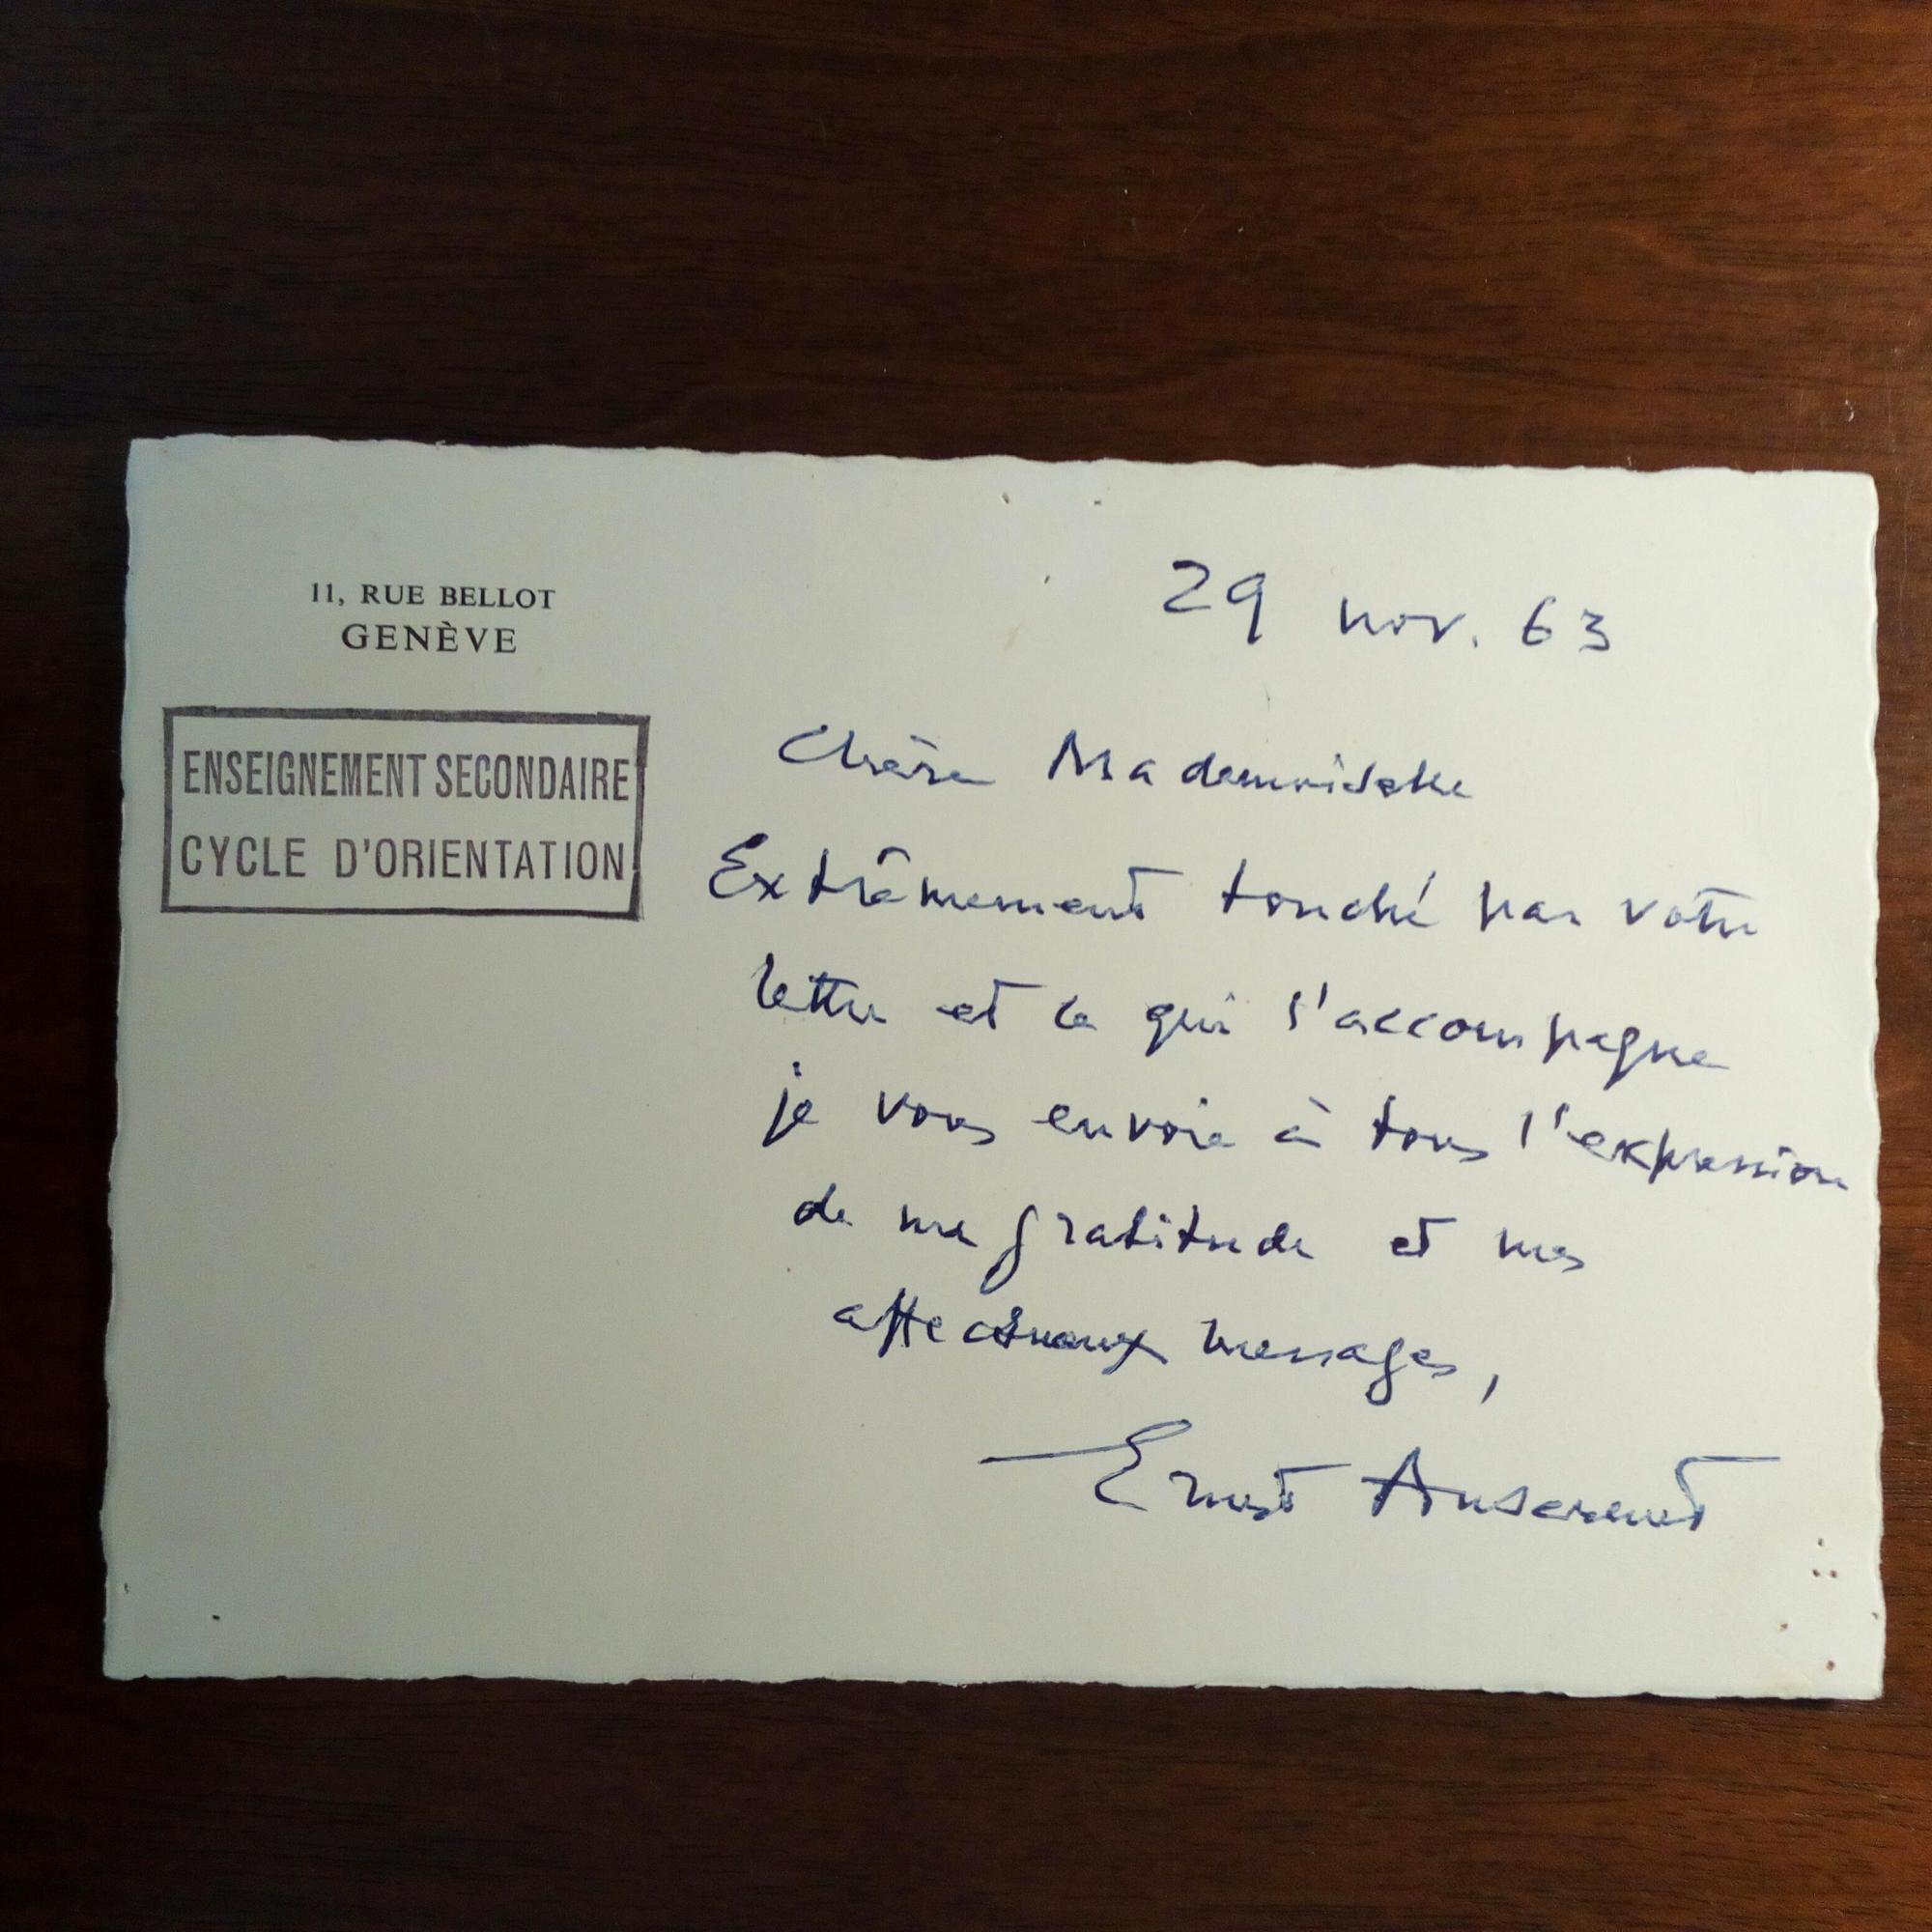 11, RUE BELLOT
GENÈVE
ENSEIGNEMENT SECONDAIRE
CYCLE D'ORIENTATION
29 nov. 63
Chère Mademoiselle
Extrêmement touché par votre
lettre et ce qui l'accompagne
je vous envoie à tous l'expression
de ma gratitude et mes
affectueux messages,
Ernest Ansermet